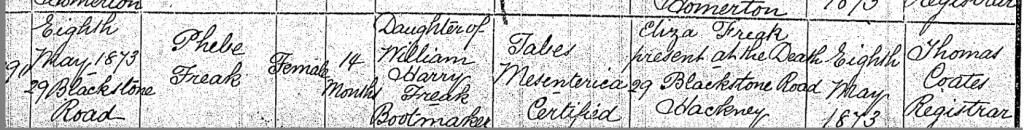 Homerton 1873 Registrar
90 Eighth May 1873 29 Blackstone Road
Phebe Freak
Female
14 Months
Daughter of William Harry Freak Bootmaker
Tabes Mesenterica Certified
Eliza Freak present at the Death 29 Blackstone Road Hackney
Eighth May 1873
Thomas Coates Registrar